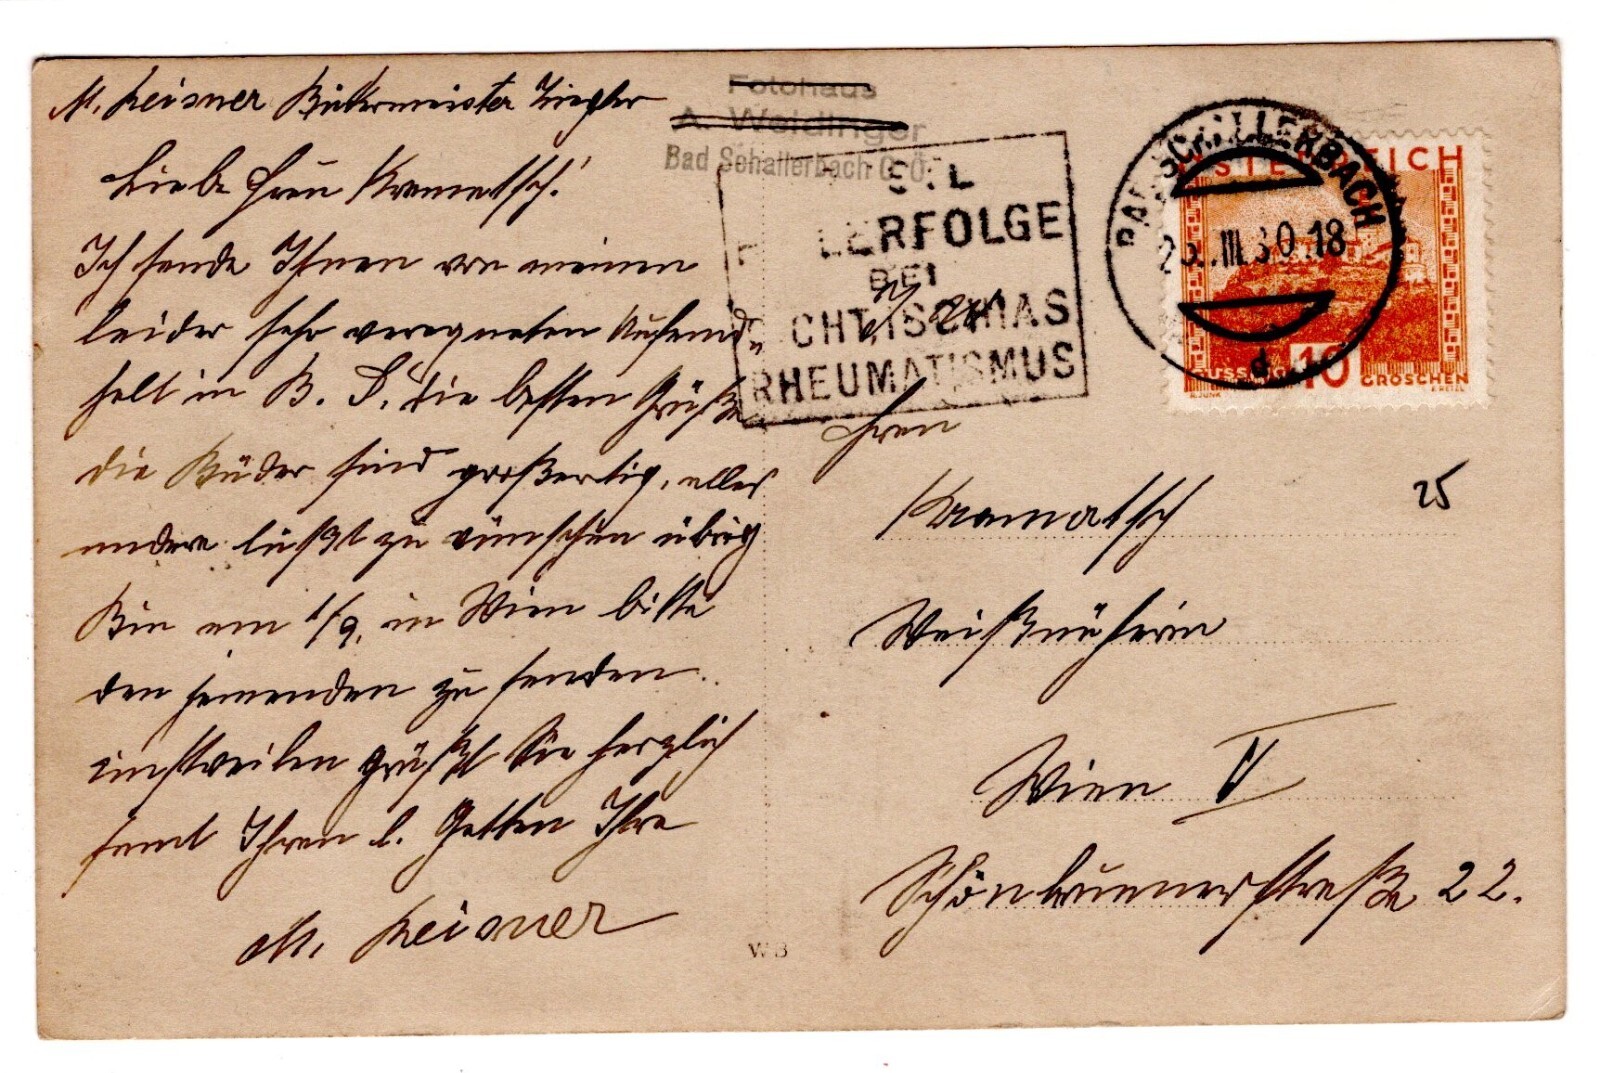 M. Keisner Bäckermeister Ziegler
Liebe Frau Kramatsch!
Ich sende Ihnen von meinen
leider sehr veregneten Aufend-
halt in B. S. die besten Grüße
die Bäder sind großartig, alles
andere läßt zu wünschen übrig
Bin am 1/9. in Wien bitte
den jemanden zu senden.
einstweilen grüßt Sie herzlich
samt Ihren l. Gatten Ihre
M. Keisner
Fotohaus
A. Weidinger
Bad Schallerbach O.Ö.
ERFOLGE
BEI
ISCHIAS
RHEUMATISMUS
BAD SCHALLERBACH
III.30.18
d
10
GROSCHEN
Frau
Kramatsch
25
Weißnäherin
Wien V
Schönbrunnerstraße 22.
WB